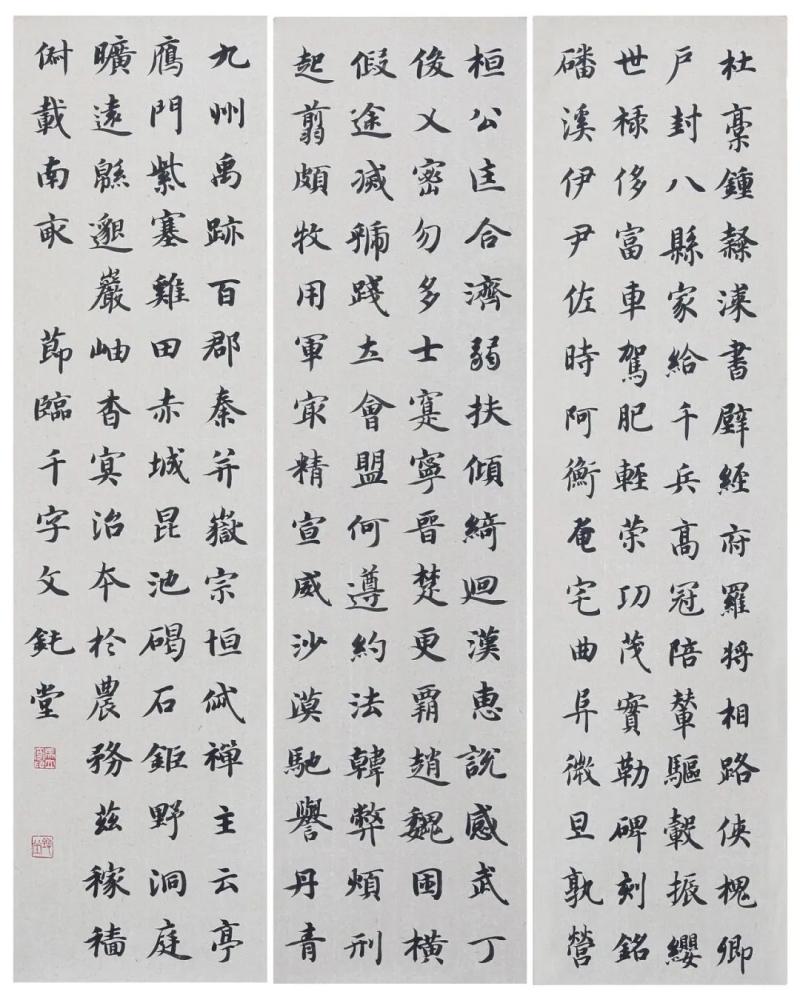 杜稾鍾隸漆書壁經府羅將相路俠槐卿
戶封八縣家給千兵高冠陪輦驅轂振纓
世祿侈富車駕肥輕榮功茂實勒碑刻銘
磻溪伊尹佐時阿衡奄宅曲阜微旦孰營
桓公匡合濟弱扶傾綺迴漢惠說感武丁
俊乂密勿多士寔寧晉楚更霸趙魏困橫
假途滅虢踐土會盟何遵約法韓弊煩刑
起翦頗牧用軍最精宣威沙漠馳譽丹青
九州禹跡百郡秦并嶽宗恒岱禪主云亭
鴈門紫塞雞田赤城昆池碣石鉅野洞庭
曠遠緜邈巖岫杳冥治本於農務茲稼穡
俶載南畝 節臨千字文鈍堂